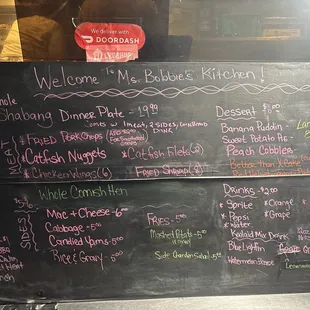 We deliver with
DOORDASH
Welcome To Ms. Bobbie's Kitchen!
Shabang Dinner Plate - 19.99
comes w/ 1 meat, 2 sides,
Drink
MEAT
*Fried Pork Chops
*Catfish Nuggets
*Catfish Filets
*Chicken Wings (6)
Fried Shrimp (8)
Dessert
Banana Puddin -
Sweet Potato Pie -
Peach Cobbler
Whole Cornish Hen
SIDES
Mac + Cheese - 6
Cabbage - 5.00
Candied Yams - 5.00
Rice & Gravy - 5.00
Fries - 5.00
Mashed Potato - 5.00
Side Garden Salad - 5
Drinks - $2.00
*Sprite
*Orange
*Pepsi
*Grape
*Water
Koolaid Mix Drink
Blue Lightin
Watermelon